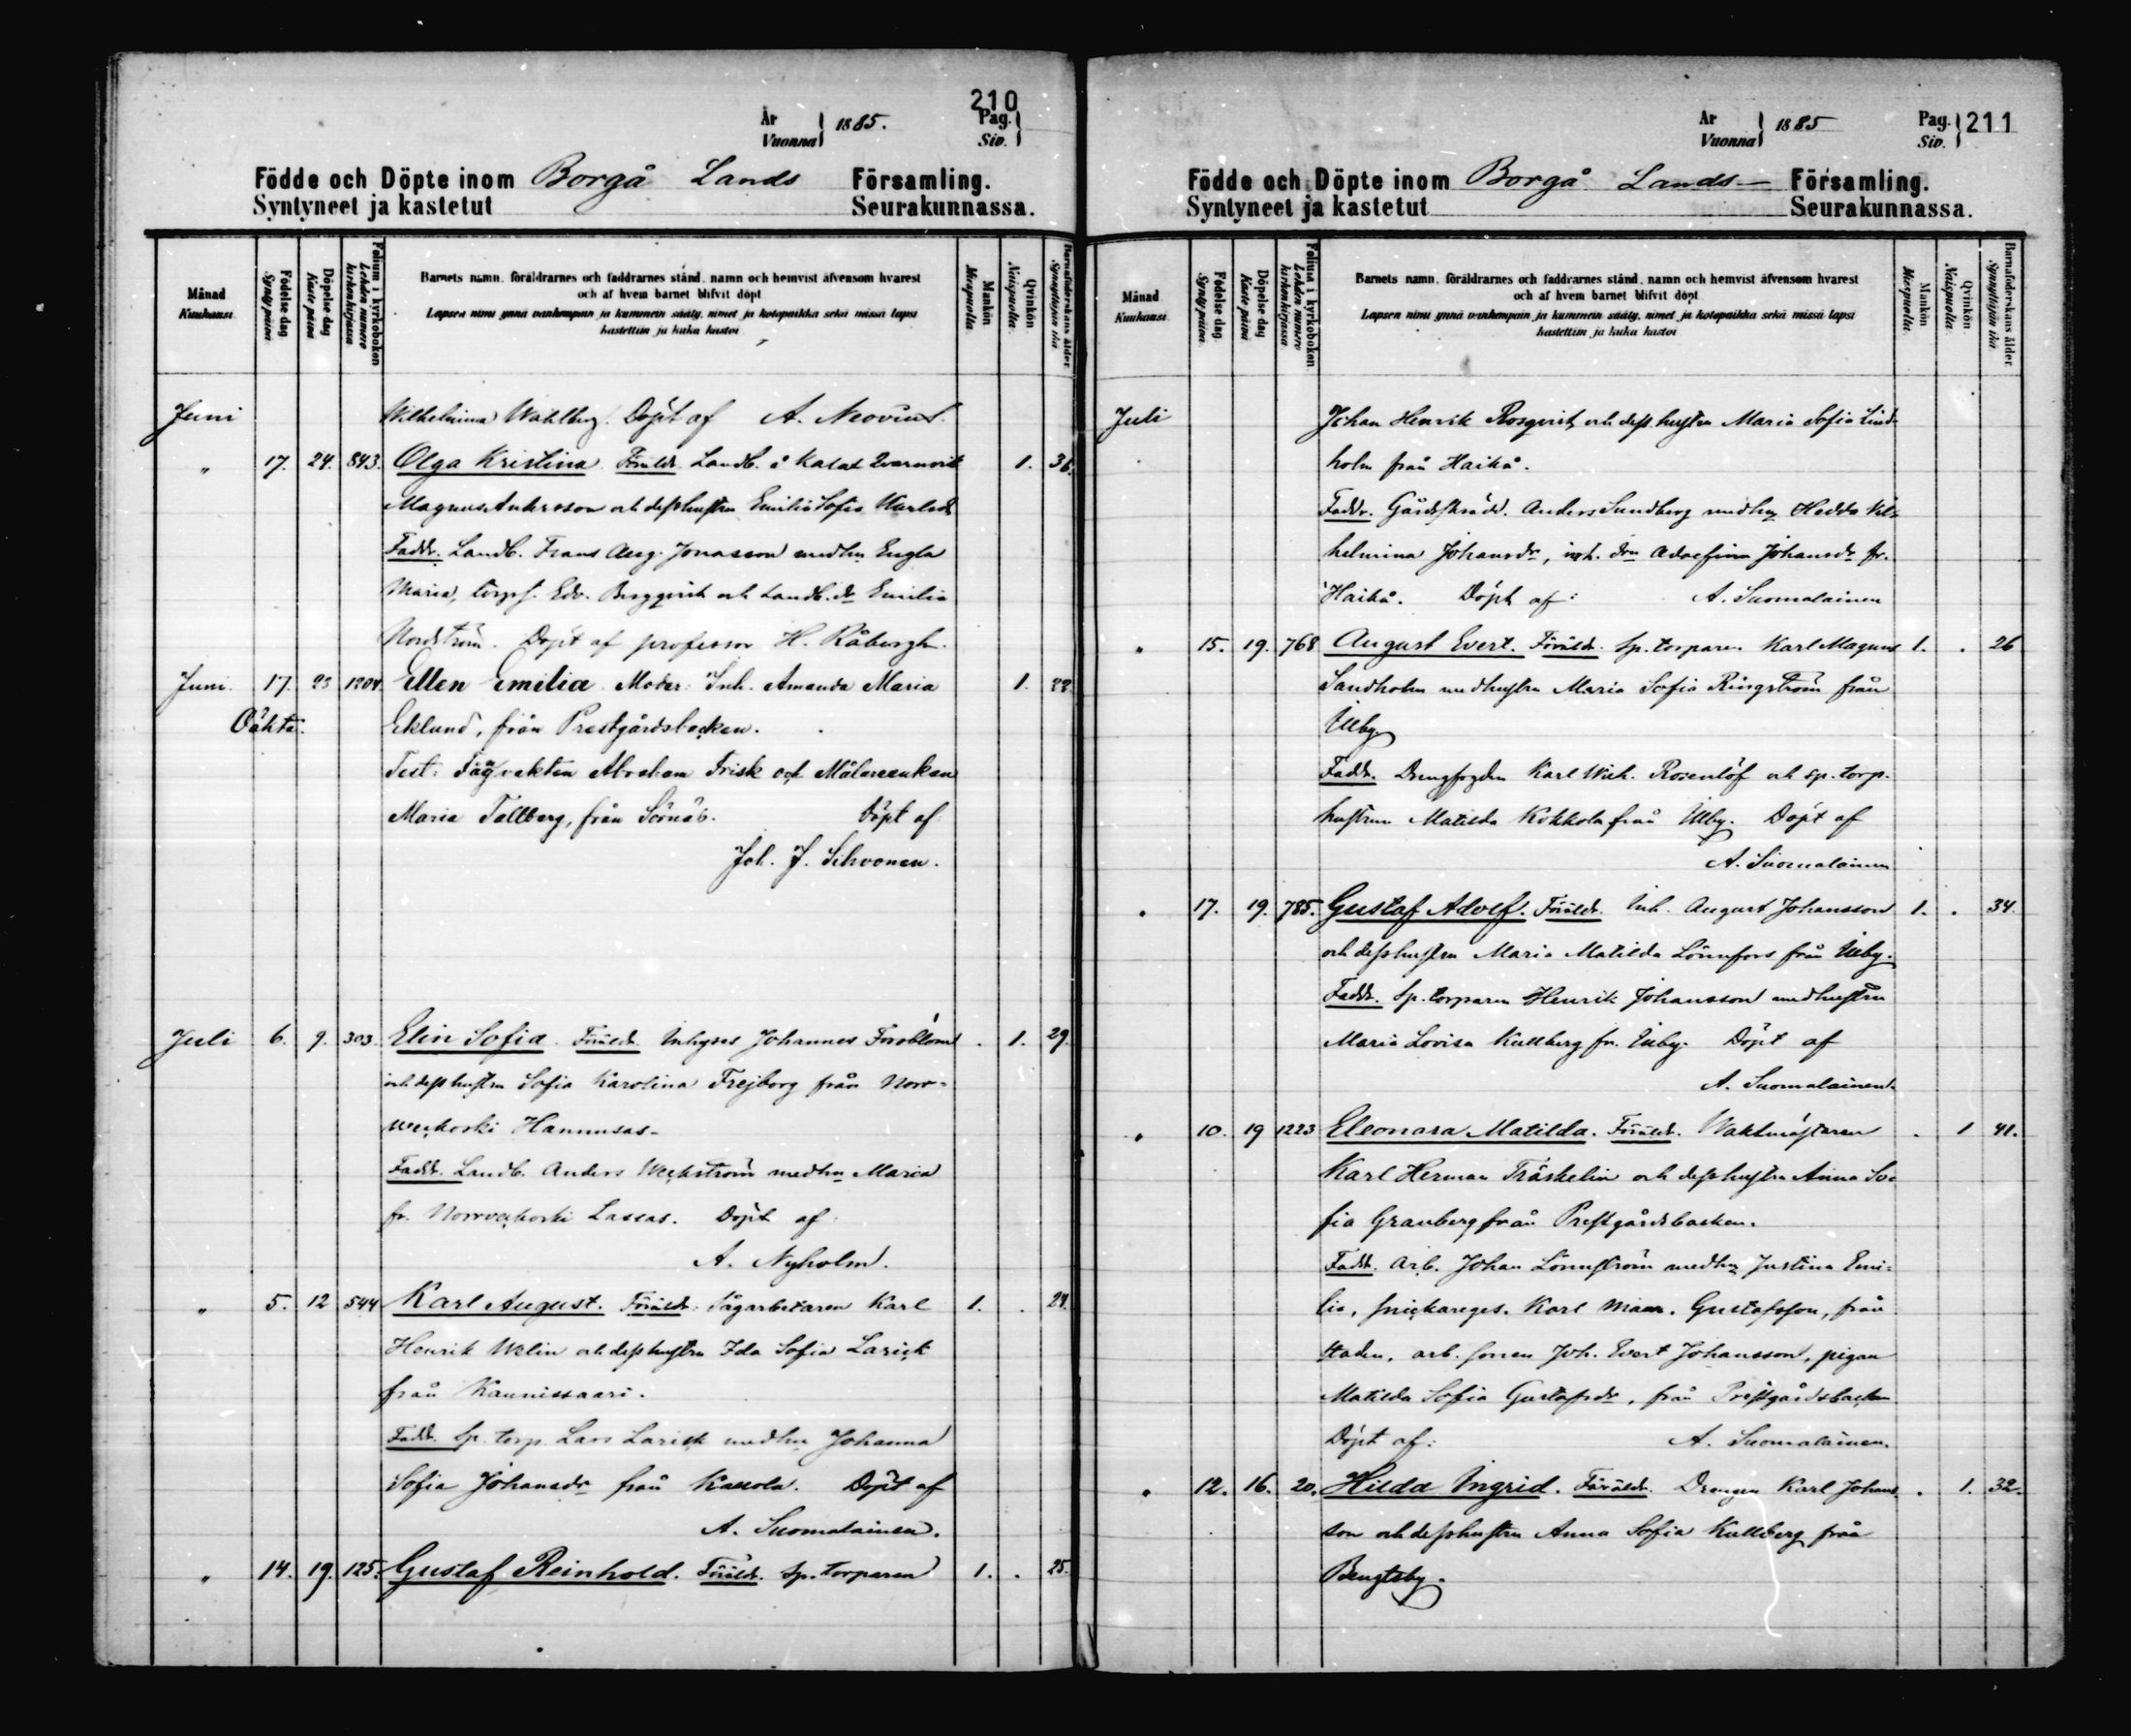 210
År
Vuonna
1885.
Pag.
Siv.
Födde och Döpte inom Borgå Lands Församling.
Syntyneet ja kastetut Seurakunnassa.
Månad
Kuukausi
Födelse dag
Synty päivä
Döpelse dag
Kaste päivä
Folium i kyrkoboken
Lehden numero kirkonkirjassa
Barnets namn, föräldrarnes och faddrarnes stånd, namn och hemvist äfvensom hvarest
och af hvem barnet blifvit döpt
Lapsen nimi ynnä vanhempain ja kummein sääty, nimet ja kotopaikka sekä missä lapsi
kastettiin ja kuka kastoi
Mankön
Miespuolia
Qvinkön
Naispuolia
Barnaföderskans ålder
Synnyttäjän ikä
Juni Wilhelmina Wahlberg. Döpt af A. Neovius.
" 17. 24. 843. Olga Kristina. Föräldr. Landb. å Kalax 1. 36.
Magnus Andersson och dess hustru Emilia Sofia
Faddr. Landb. Frans Aug. Jonasson med hu Engla
Maria, torp. Edv. Bergqvist och Landb. dr Emilia
Nordström. Döpt af professor H. Råbergh.
Juni. 17. 23 1204 Ellen Emilia. Moder: Inh. Amanda Maria 1. 22.
Oäkta. Eklund, från Prestgårdsbacken.
Test: Tågvakten Abraham Frisk och Målareenkan
Maria Tallberg, från Sörnäs. Döpt af
Joh. J. Sihvonen.
Juli 6. 9. 303. Elin Sofia. Föräldr. Inhyses Johannes Forsblom . 1. 29.
och dess hustru Sofia Karolina Frejborg från Norr-
weckoski Hannusas.
Faddr. Landb. Anders Weckström med hu Maria
fr. Norrveckoski Lassas. Döpt af
A. Nyholm.
" 5. 12 544 Karl August. Föräldr: Sågarbetaren Karl 1. . 24.
Henrik Welin och dess hustru Ida Sofia Larick
från Kaunissaari.
Faddr. Sp. torp. Lars Larick med hu Johanna
Sofia Johansdr från Döpt af
A. Suomalainen.
" 14. 19. 125. Gustaf Reinhold. Föräldr. Sp. torparen 1. . 25.
År
Vuonna
1885
Pag.
Siv.
211
Födde och Döpte inom Borgå Lands Församling.
Syntyneet ja kastetut Seurakunnassa.
Månad
Kuukausi
Födelse dag
Synty päivä
Döpelse dag
Kaste päivä
Folium i kyrkoboken
Lehden numero kirkonkirjassa
Barnets namn, föräldrarnes och faddrarnes stånd, namn och hemvist äfvensom hvarest
och af hvem barnet blifvit döpt
Lapsen nimi ynnä vanhempain ja kummein sääty, nimet ja kotopaikka sekä missä lapsi
kastettiin ja kuka kastoi
Mankön
Miespuolia
Qvinkön
Naispuolia
Barnaföderskans ålder
Synnyttäjän ikä
Juli Johan Henrik Rosqvist och dess hustru Maria Sofia Lind-
holm från Haikå.
Faddr. Gårdsskrädd. Anders Sundberg med hu Hedda Vil-
helmina Johansdr, inh. Adolfina Johansdr fr.
Haikå. Döpt af: A. Suomalainen
" 15. 19. 768 August Evert. Föräldr. Sp. torparen Karl Magnus 1. . 26
Sandholm med hustru Maria Sofia Ringström från
Illby.
Faddr. Drengfogden Karl Wilh. Rosenlöf och sp. torp.
hustrun Matilda Kokkola från Illby. Döpt af
A. Suomalainen
" 17. 19. 785. Gustaf Adolf. Föräldr. Inh. August Johansson 1. . 34.
och dess hustru Maria Matilda Lönnfors från Illby.
Faddr. Sp. torparen Henrik Johansson med hustru
Maria Lovisa Kullberg fr. Illby. Döpt af
A. Suomalainen.
" 10. 19 1223 Eleonara Matilda. Föräldr. Waktmästaren . 1 41.
Karl Herman Träskelin och dess hustru Anna So-
fia Granberg från Prestgårdsbacken.
Faddr. Arb. Johan Lönnström med hu Justina Emi-
lia, snickareges. Karl Gustafsson, från
staden, arb. sonen Joh. Evert Johansson, pigan
Matilda Sofia Gustafsdr, från Prestgårdsbacken
Döpt af: A. Suomalainen.
" 12. 16. 20. Hilda Ingrid. Föräldr. Drengen Karl Johans- . 1. 32.
son och dess hustru Anna Sofia Kullberg från
Bengtsby.